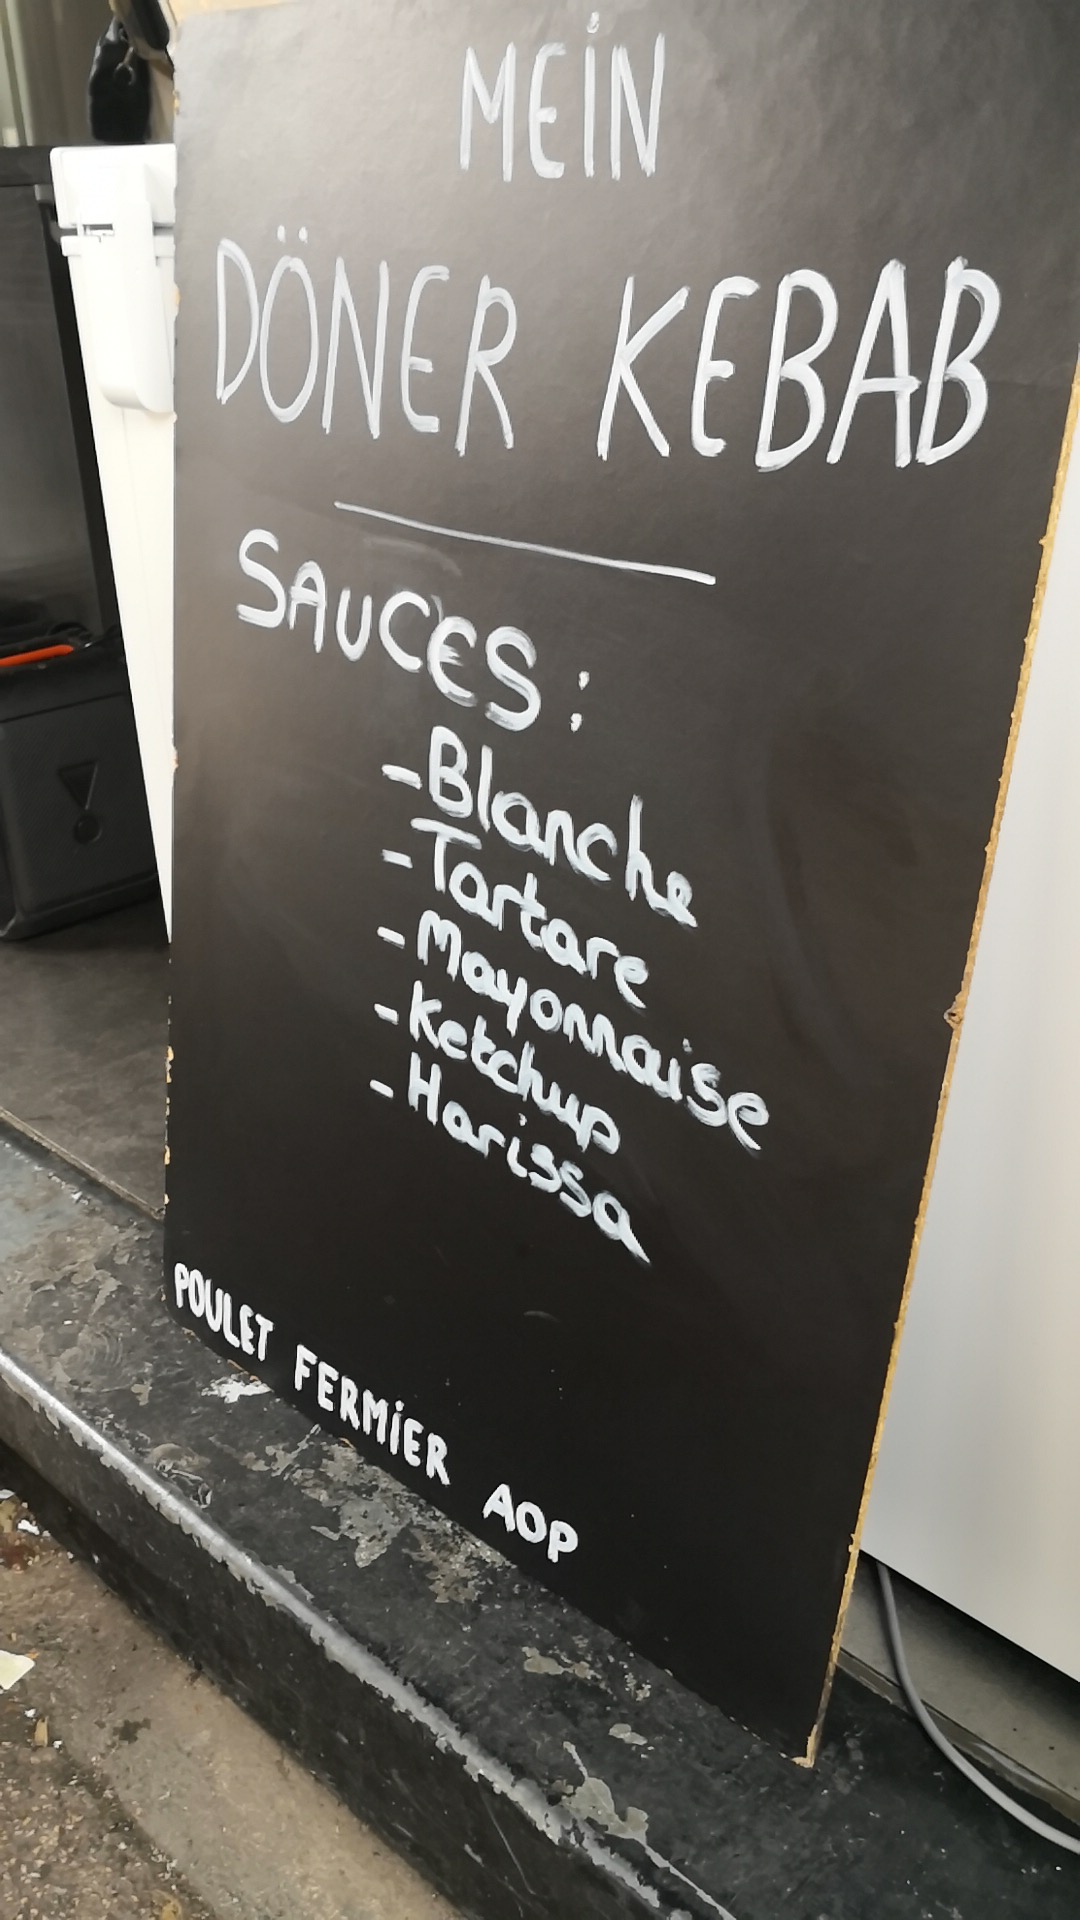 MEIN
DÖNER KEBAB
SAUCES :
- Blanche
- Tartare
- Mayonnaise
- Ketchup
- Harissa
POULET FERMIER AOP